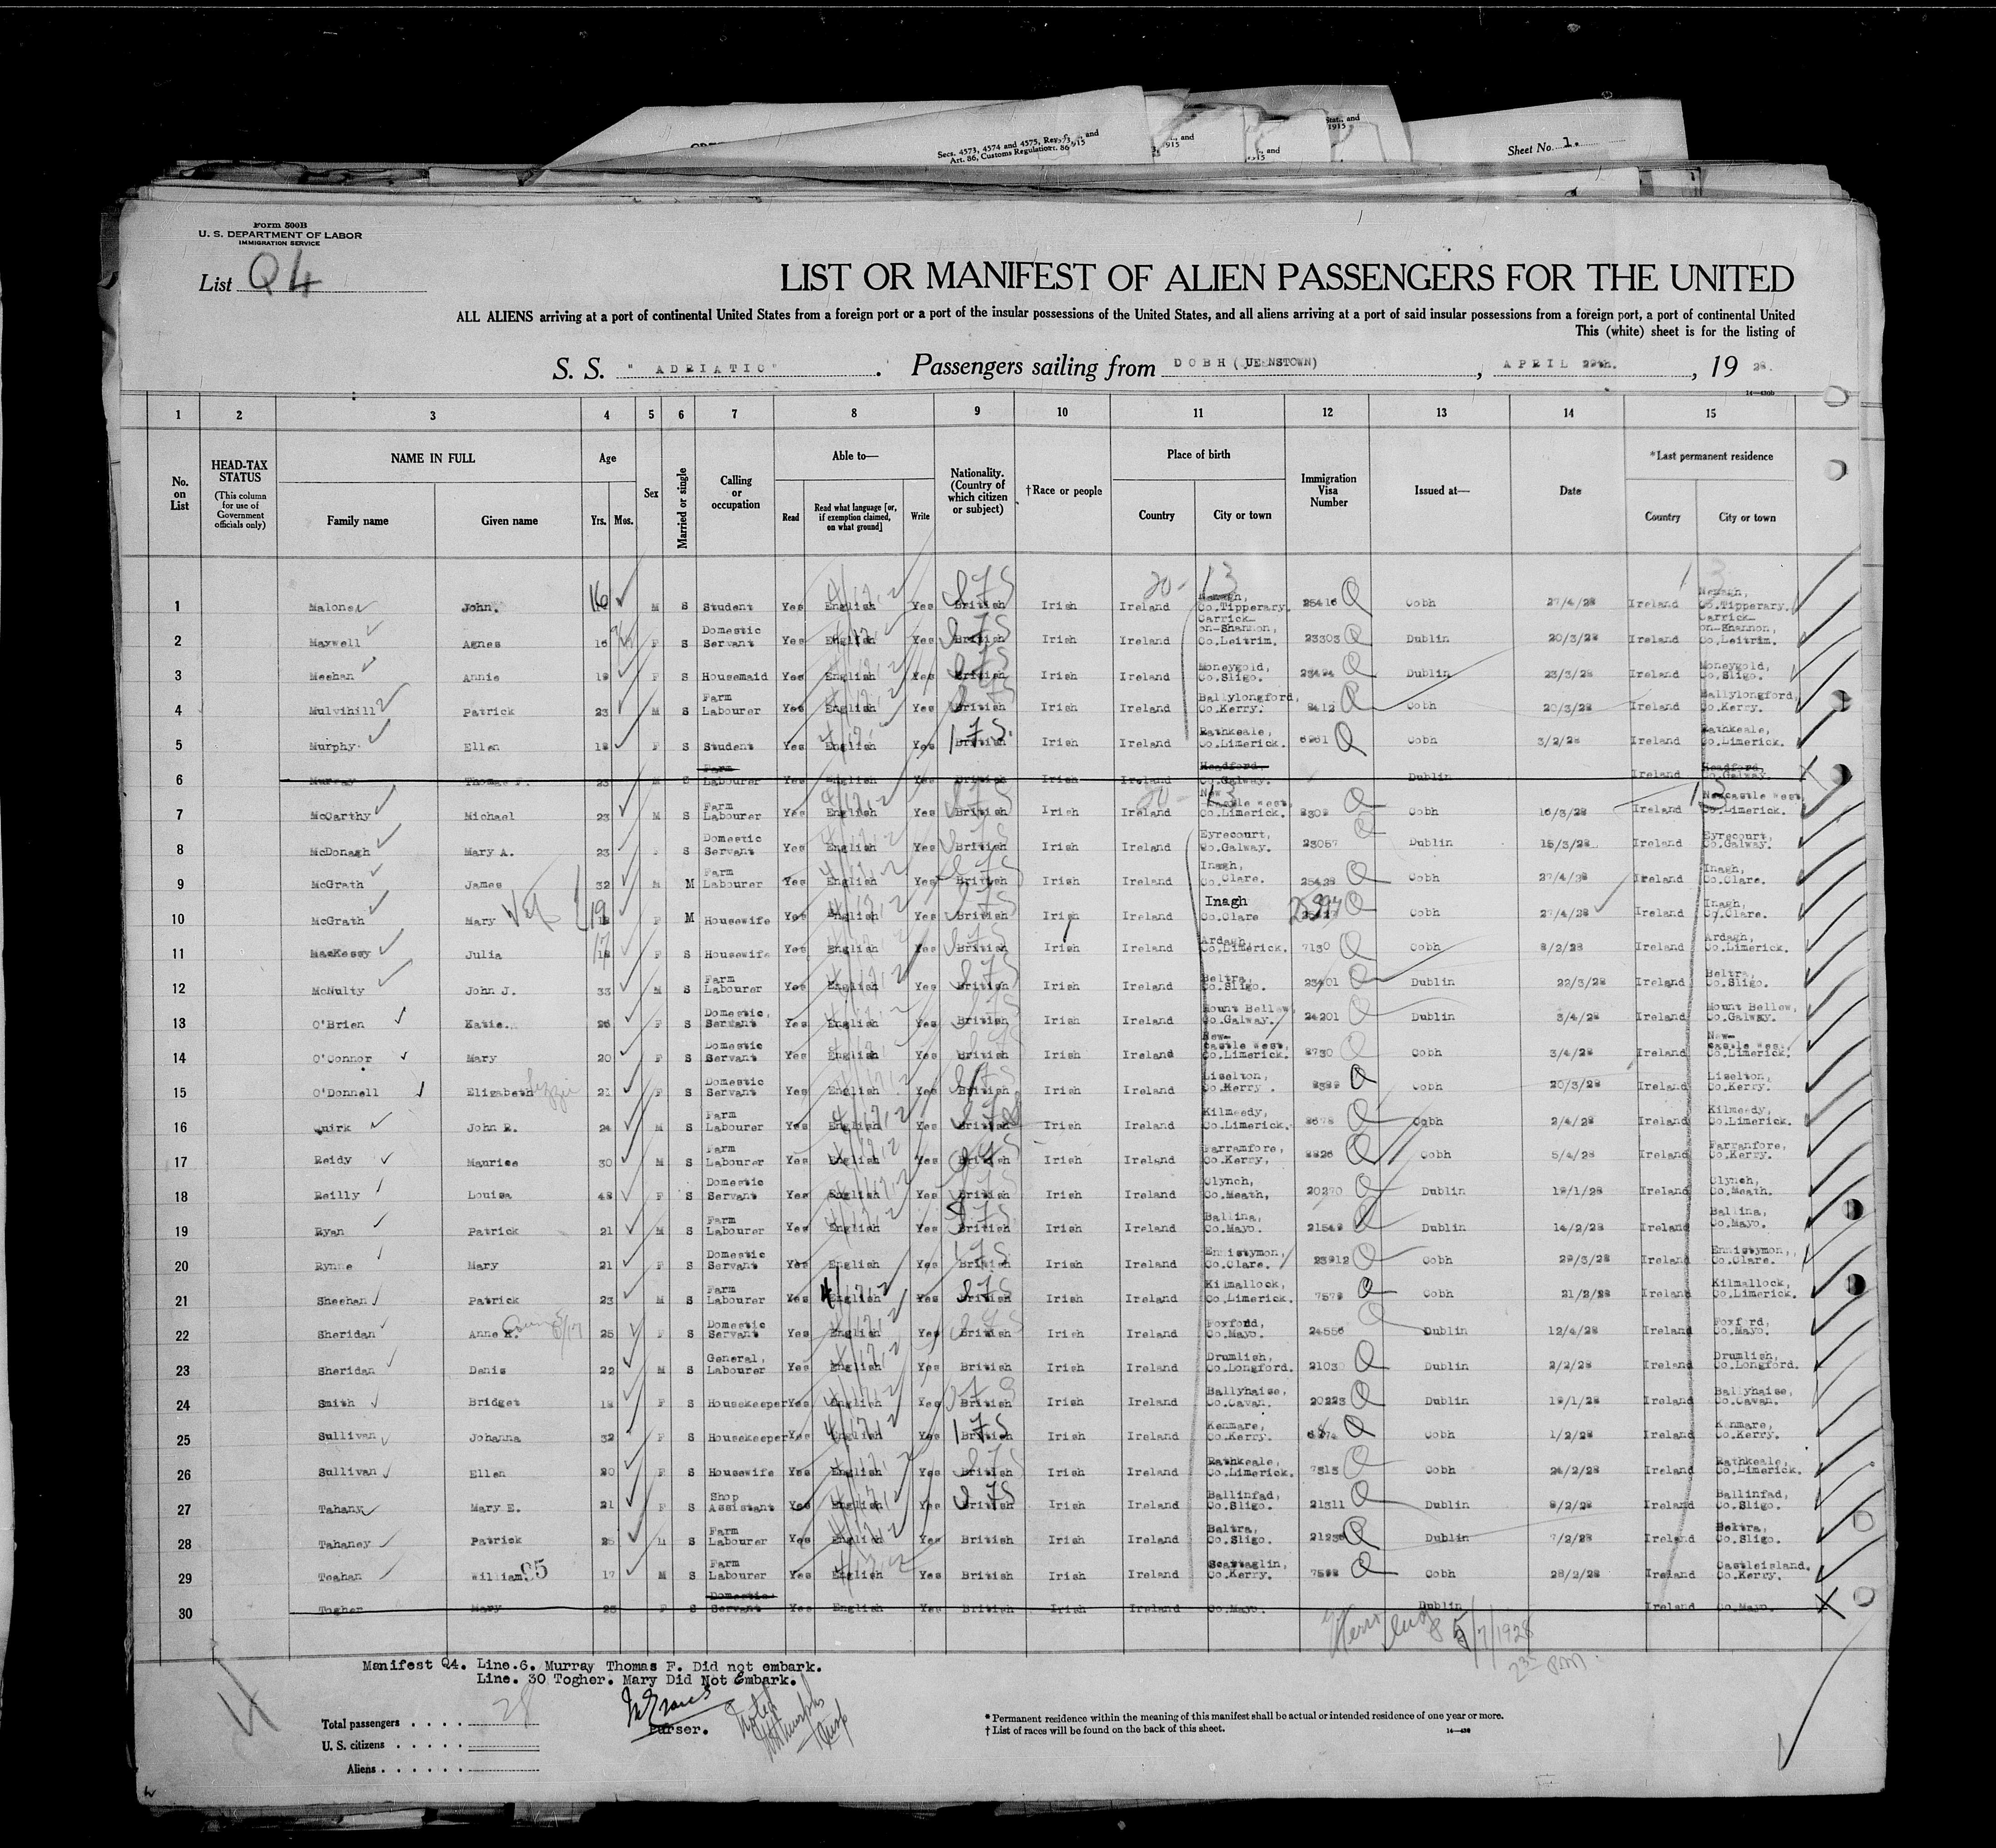 Secs. 4573, 4574 and 4575, Rev. and
Art. 86, Customs Regulations 1915
Stat., and
1915
Sheet No. 1.
Form 500B
U. S. DEPARTMENT OF LABOR
IMMIGRATION SERVICE
List Q4
LIST OR MANIFEST OF ALIEN PASSENGERS FOR THE UNITED
ALL ALIENS arriving at a port of continental United States from a foreign port or a port of the insular possessions of the United States, and all aliens arriving at a port of said insular possessions from a foreign port, a port of continental United
This (white) sheet is for the listing of
S. S. "ADRIATIC". Passengers sailing from DOBH (UEENSTOWN), APRIL 29th., 1928.
14—430b
1 2 3 4 5 6 7 8 9 10 11 12 13 14 15
No. on List
HEAD-TAX STATUS (This column for use of Government officials only)
NAME IN FULL Family name Given name
Age Yrs. Mos.
Sex
Married or single
Calling or occupation
Able to— Read Read what language [or, if exemption claimed, on what ground] Write
Nationality. (Country of which citizen or subject)
†Race or people
Place of birth Country City or town
Immigration Visa Number
Issued at—
Date
*Last permanent residence Country City or town
1 Malone John. 16 M S Student Yes English Yes British Irish Ireland Nenagh, Co.Tipperary. 25416 Q Cobh 27/4/28 Ireland Nenagh, Co.Tipperary.
2 Maxwell Agnes 16 F S Domestic Servant Yes English Yes British Irish Ireland Carrick-on-Shannon, Co.Leitrim. 23303 Q Dublin 20/3/28 Ireland Carrick-on-Shannon, Co.Leitrim.
3 Meehan Annie 19 F S Housemaid Yes English Yes British Irish Ireland Moneygold, Co.Sligo. 23494 Q Dublin 23/3/28 Ireland Moneygold, Co.Sligo.
4 Mulvihill Patrick 23 M S Farm Labourer Yes English Yes British Irish Ireland Ballylongford, Co.Kerry. 8412 Q Cobh 20/3/28 Ireland Ballylongford, Co.Kerry.
5 Murphy Ellen 18 F S Student Yes English Yes British Irish Ireland Rathkeale, Co.Limerick. Q Cobh 3/2/28 Ireland Rathkeale, Co.Limerick.
6 Murray Thomas F. 23 M S Farm Labourer Yes English Yes British Irish Ireland Headford, Co.Galway. Dublin Ireland Headford, Co.Galway.
7 McCarthy Michael 23 M S Farm Labourer Yes English Yes British Irish Ireland New castle West, Co.Limerick. 8308 Q Cobh 16/3/28 Ireland Newcastle West, Co.Limerick.
8 McDonagh Mary A. 23 F S Domestic Servant Yes English Yes British Irish Ireland Eyrecourt, Co.Galway. 23057 Q Dublin 15/3/28 Ireland Eyrecourt, Co.Galway.
9 McGrath James 32 M M Farm Labourer Yes English Yes British Irish Ireland Inagh, Co.Clare. 25428 Q Cobh 27/4/28 Ireland Inagh, Co.Clare.
10 McGrath Mary 19 F M Housewife Yes English Yes British Irish Ireland Inagh Co.Clare Q Cobh 27/4/28 Ireland Inagh, Co.Clare.
11 MacKessy Julia F S Housewife Yes English Yes British Irish Ireland Ardagh, Co.Limerick. 7130 Q Cobh 8/2/28 Ireland Ardagh, Co.Limerick.
12 McNulty John J. 33 M S Farm Labourer Yes English Yes British Irish Ireland Beltra, Co.Sligo. 23401 Q Dublin 22/3/28 Ireland Beltra, Co.Sligo.
13 O'Brien Katie. 26 F S Domestic, Servant Yes English Yes British Irish Ireland Mount Bellew, Co.Galway. 24201 Q Dublin 3/4/28 Ireland Mount Bellew, Co.Galway.
14 O'Connor Mary 20 F S Domestic Servant Yes English Yes British Irish Ireland New-castle West, Co.Limerick. 8730 Q Cobh 3/4/28 Ireland New-castle West, Co.Limerick.
15 O'Donnell Elizabeth Lizzie 21 F S Domestic Servant Yes English Yes British Irish Ireland Liselton, Co.Kerry. 8389 Q Cobh 20/3/28 Ireland Liselton, Co.Kerry.
16 Quirk John R. 24 M S Farm Labourer Yes English Yes British Irish Ireland Kilmeedy, Co.Limerick. 8678 Q Cobh 2/4/28 Ireland Kilmeedy, Co.Limerick.
17 Reidy Maurice 30 M S Farm Labourer Yes English Yes British Irish Ireland Farranfore, Co.Kerry, 8826 Q Cobh 5/4/28 Ireland Farranfore, Co.Kerry.
18 Reilly Louisa 48 F S Domestic Servant Yes English Yes British Irish Ireland Clynch, Co.Meath, 20270 Q Dublin 19/1/28 Ireland Clynch, Co.Meath.
19 Ryan Patrick 21 M S Farm Labourer Yes English Yes British Irish Ireland Ballina, Co.Mayo. 21549 Q Dublin 14/2/28 Ireland Ballina, Co.Mayo.
20 Rynne Mary 21 F S Domestic Servant Yes English Yes British Irish Ireland Ennistymon, Co.Clare. 23912 Q Cobh 29/3/28 Ireland Ennistymon, Co.Clare.
21 Sheehan Patrick 23 M S Farm Labourer Yes English Yes British Irish Ireland Kilmallock, Co.Limerick. 7579 Q Cobh 21/2/28 Ireland Kilmallock, Co.Limerick.
22 Sheridan Anne K. 25 F S Domestic Servant Yes English Yes British Irish Ireland Foxford, Co.Mayo. 24556 Q Dublin 12/4/28 Ireland Foxford, Co.Mayo.
23 Sheridan Denis 22 M S General, Labourer Yes English Yes British Irish Ireland Drumlish, Co.Longford. 21030 Q Dublin 2/2/28 Ireland Drumlish, Co.Longford.
24 Smith Bridget 18 F S Housekeeper Yes English Yes British Irish Ireland Ballyhaise, Co.Cavan. 20223 Q Dublin 19/1/28 Ireland Ballyhaise, Co.Cavan.
25 Sullivan Johanna 32 F S Housekeeper Yes English Yes British Irish Ireland Kenmare, Co.Kerry. Q Cobh 1/2/28 Ireland Kenmare, Co.Kerry.
26 Sullivan Ellen 20 F S Housewife Yes English Yes British Irish Ireland Rathkeale, Co.Limerick. 7315 Q Cobh 24/2/28 Ireland Rathkeale, Co.Limerick.
27 Tahany Mary E. 21 F S Shop Assistant Yes English Yes British Irish Ireland Ballinfad, Co.Sligo. 21311 Q Dublin 8/2/28 Ireland Ballinfad, Co.Sligo.
28 Tahaney Patrick 25 M S Farm Labourer Yes English Yes British Irish Ireland Beltra, Co.Sligo. 21236 Q Dublin 7/2/28 Ireland Beltra, Co.Sligo.
29 Teahan William 95 17 M S Farm Labourer Yes English Yes British Irish Ireland Scartaglin, Co.Kerry. 7598 Q Cobh 28/2/28 Ireland Castleisland. Co.Kerry.
30 Togher Mary 23 F S Domestic Servant Yes English Yes British Irish Ireland Co.Mayo. Dublin Ireland Co.Mayo.
Manifest Q4. Line.6. Murray Thomas F. Did not embark.
Line. 30 Togher. Mary Did Not Embark.
Purser.
Total passengers . . . . 28
U. S. citizens . . . . .
Aliens . . . . . .
* Permanent residence within the meaning of this manifest shall be actual or intended residence of one year or more.
† List of races will be found on the back of this sheet.
14—430